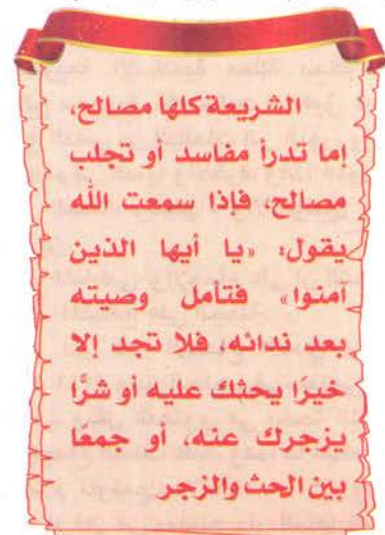 الشريعة كلها مصالح،
إما تدرأ مفاسد أو تجلب
مصالح، فإذا سمعت الله
يقول: «يا أيها الذين
آمنوا» فتأمل وصيته
بعد ندائه، فلا تجد إلا
خيرًا يحثك عليه أو شرًّا
يزجرك عنه، أو جمعًا
بين الحث والزجر